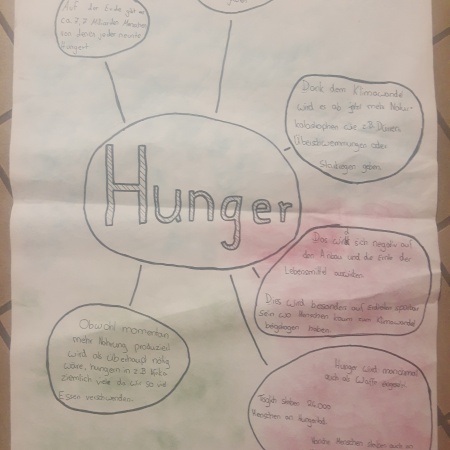 Auf der Erde gibt es
ca. 7,7 Milliarden Menschen
von denen jeder neunte
hungert
geben.
Dank dem Klimawandel
wird es ab jetzt mehr Natur-
katastrophen wie z.B. Dürren
Überschwemmungen oder
Starkregen geben
Hunger
Das wirkt sich negativ auf
den Anbau und die Ernte der
Lebensmittel auswirken
Dies wird besonders auf Gebieten spürbar
sein wo Menschen kaum zum Klimawandel
beigetragen haben
Obwohl momentan
mehr Nahrung produziert
wird als überhaupt nötig
wäre, hungern in z.B. Afrika
ziemlich viele da wir so viel
Essen verschwenden
Hunger wird manchmal
auch als Waffe eingesetzt
Täglich sterben 24000
Menschen an Hungertod
Menschen sterben auch an